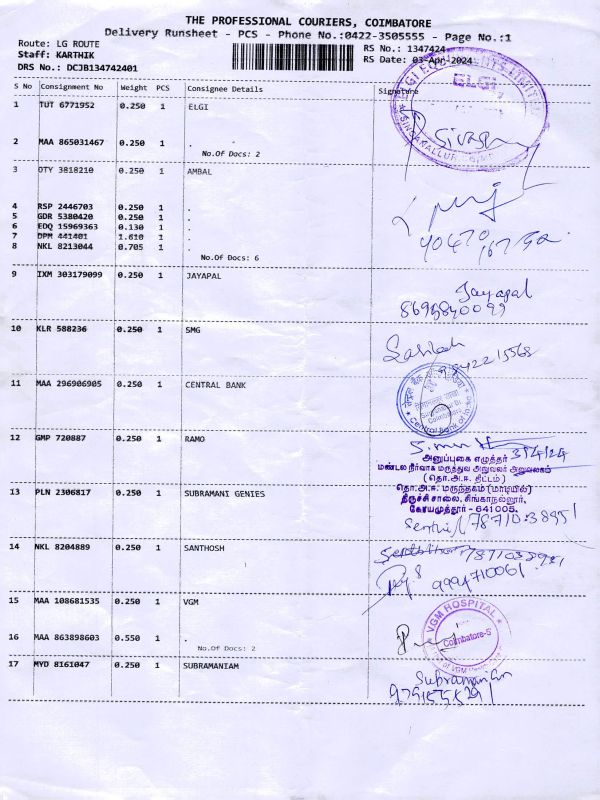 THE PROFESSIONAL COURIERS, COIMBATORE
Delivery Runsheet - PCS - Phone No.:0422-3505555 - Page No.:1
Route: LG ROUTE
Staff: KARTHIK
DRS No.: DCJB134742401
RS No.: 1347424
RS Date: 03-Apr-2024
S No Consignment No Weight PCS Consignee Details Signature
1 TUT 6771952 0.250 1 ELGI
ELGI
SINGANALLUR
Sivasa
2 MAA 865031467 0.250 1 .
No.Of Docs: 2
3 OTY 3818210 0.250 1 AMBAL
4 RSP 2446703 0.250 1 .
5 GDR 5380420 0.250 1 .
6 EDQ 15969363 0.130 1 .
7 DPM 441401 1.610 1 .
8 NKL 8213044 0.705 1 .
No.Of Docs: 6
9 IXM 303179099 0.250 1 JAYAPAL
Jayapal
10 KLR 588236 0.250 1 SMG
9842215568
11 MAA 296906905 0.250 1 CENTRAL BANK
Central Bank of India
12 GMP 720887 0.250 1 RAMO
3/4/24
அனுப்புகை எழுத்தர்
மண்டல நிர்வாக மருத்துவ அலுவலர் அலுவலகம்
(தொ.அ.ஈ. திட்டம்)
தொ.அ.ஈ. மருந்தகம் (மாடியில்)
திருச்சி சாலை, சிங்காநல்லூர்,
கோயமுத்தூர் - 641005.
13 PLN 2306817 0.250 1 SUBRAMANT GENIES
Senthil 7871038951
14 NKL 8204889 0.250 1 SANTHOSH
9994710061
15 MAA 108681535 0.250 1 VGM
VGM HOSPITAL
Coimbatore-5
16 MAA 863898603 0.550 1 .
No.Of Docs: 2
17 MYD 8161047 0.250 1 SUBRAMANIAM
Subramanian